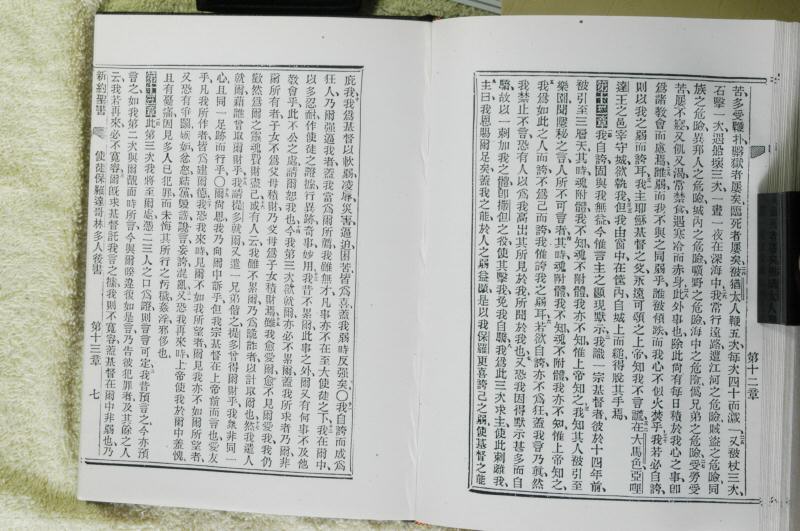 第十二章
苦多受鞭扑歸獄者屢矣臨死者屢矣被猶太人鞭五次每次四十而減一又被杖三次
石擊一次遇船壞三次一晝一夜在深海中我常行遠路遭江河之危險賊盜之危險同
族之危險異邦人之危險城內之危險曠野之危險海中之危險偽兄弟之危險受勞受
苦屢不寢又飢又渴常禁食遇寒冷而赤身此外事也除此尚有每日積於我心之事卽
爲諸教會而慮焉誰弱而我不與之同弱乎誰被傾跌而我心不似火焚乎我若必自誇
則以我之弱而誇耳我主耶穌基督之父永遠可頌之上帝知我不言謊在大馬色亞哩
達王之邑宰守城欲執我但我由窗中在筐內自城上而縋得脫其手焉
第十二章我自誇固與我無益今惟言主之顯現默示我識一宗基督者彼於十四年前
被引至三層天其時魂附體我不知魂不附體我亦不知惟上帝知之我知其人被引至
樂園聞隱秘之言人所不可言者其時魂附體我不知魂不附體我亦不知惟上帝知之
我爲如此之人而誇不爲己而誇我惟誇我之弱耳若欲自誇亦不爲狂蓋我言乃眞然
我禁止不言恐有人以我爲高出其所見於我所聞於我也又恐我因得默示甚多而自
驕故以一刺加我之體卽撒但之役使其擊我免我自驕我爲此三次求主使此刺離我
主曰我恩賜爾足矣蓋我之能於人之弱益顯是以我保羅更喜誇己之弱使基督之能
庇我我爲基督以軟弱凌辱災害逼迫困苦皆爲喜蓋我弱時反强矣〇我自誇而成爲
狂人乃爾强逼我者蓋我當爲爾所薦我雖無才凡事亦不在至大使徒之下我在爾中
以多忍耐作使徒之證據行異跡奇事妙用我昔不累爾此事之外爾又有何事不及他
教會乎此不公之處請爾恕我也今我第三次欲就爾亦必不累爾蓋我所求者乃爾非
爾所有者子女不爲父母積財乃父母爲子女積財焉雖我愈愛爾愈不見爾愛我我仍
歡然爲爾之靈魂費財盡己或有人云我雖不累爾乃爲詭詐者以計取爾也然我遣人
就爾藉誰曾取爾財乎我請提多就爾又遣一兄弟偕之提多曾得爾財乎我衆非同一
心且同一足跡而行乎〇爾尚思我乃向爾中訴乎但我宗基督在上帝前而言也愛友
乎凡我所作者皆爲建爾德我恐我來時見爾不如我所望者爾見我亦不如爾所望者
又恐有爭鬭嫉妒忿怒結黨毀謗讒言妄誇混亂又恐我再來時上帝使我於爾中羞愧
且有憂痛因見多人已犯罪而未悔其所行之污穢姦淫邪侈也
第十三章此第三次我將至爾處憑二三人之口爲證則言言可定我昔預言之今亦預
言之如我第二次與爾覿面時所言今與爾睽違復如是言乃告彼犯罪者及其餘之人
云我若再來必不寬容爾旣求基督託我言之憑據我則不寬容蓋基督在爾中非弱也乃
新約聖書 使徒保羅達哥林多人後書 第十三章 七